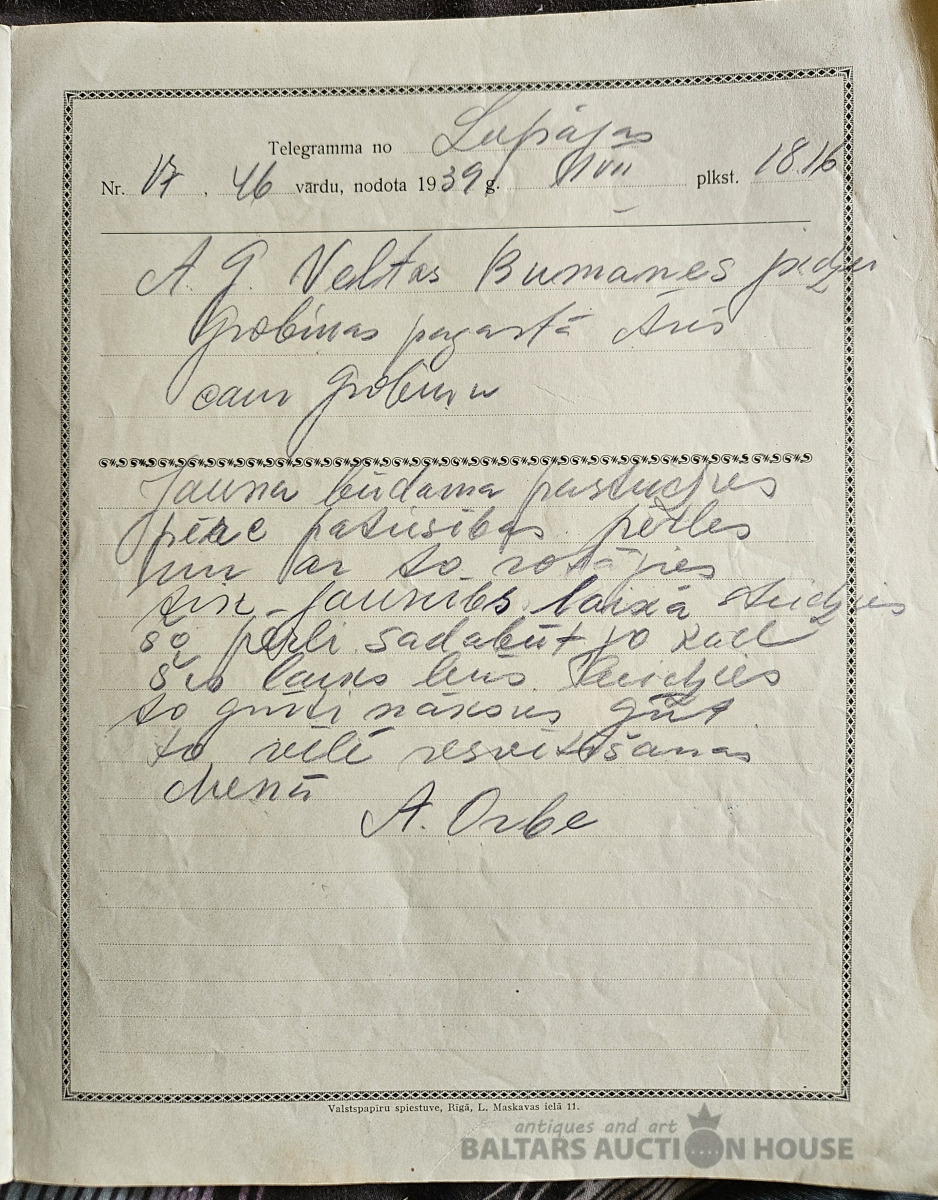 Telegramma no Leepājas
Nr. 17, 46 vārdu, nodota 1939 g. plkst. 18.16
A. G. Veltas Bumanes
Grobinas pagastā
caur Grobinu
Jauna būdama pastudjies
pēac patiesibas pērles
un ar to rotājies
tik Jaunibs laixā steidzies
šo pērli sadabūt jo kad
šis laiks būs beidzies
to grūti nāxsies gūt
to vēlē iesvētīšanas
dienā
A. Orbe
Valstspapīru spiestuve, Rīgā, L. Maskavas ielā 11.
antiques and art
BALTARS AUCTION HOUSE